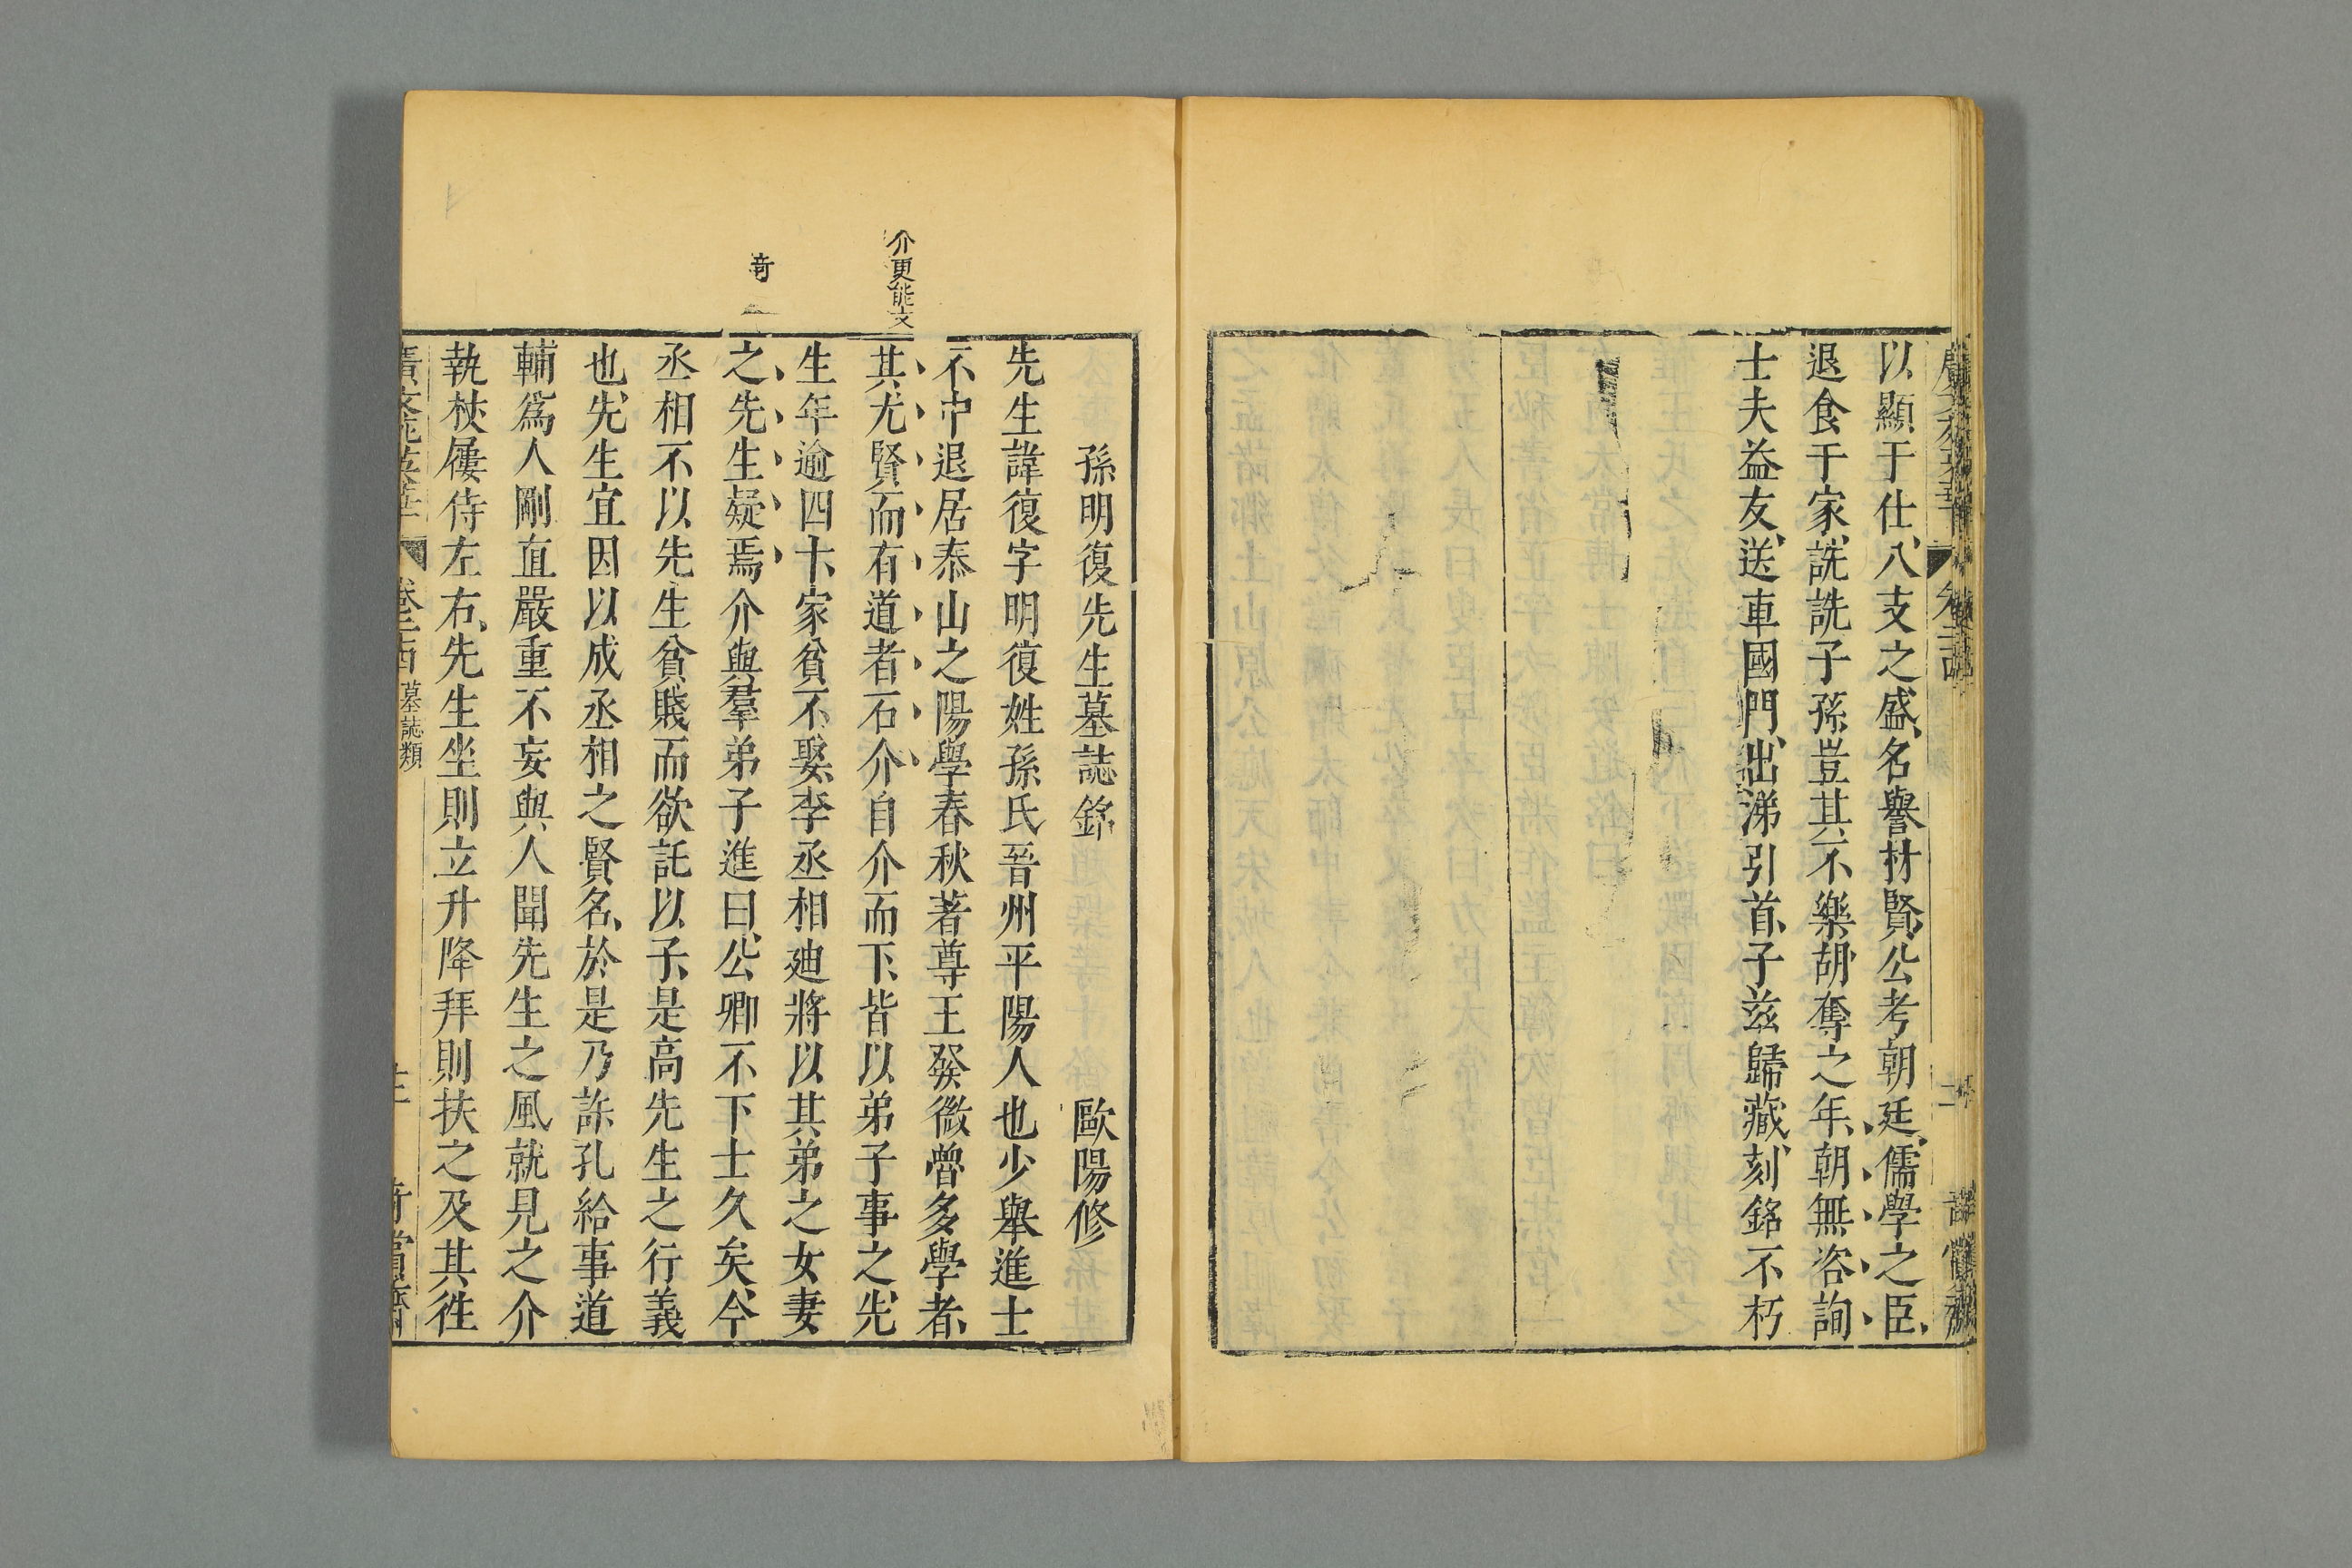 以顯于仕八支之盛名譽材賢公考朝廷儒學之臣
退食于家詵詵子孫豈其不樂胡奪之年朝無咨詢
士夫益友送車國門出涕引首子兹歸藏刻銘不朽
孫明復先生墓誌銘 歐陽修
先生諱復字明復姓孫氏晉州平陽人也少舉進士
不中退居泰山之陽學春秋著尊王發微魯多學者
其尤賢而有道者石介自介而下皆以弟子事之先
生年逾四十家貧不娶李丞相廸將以其弟之女妻
之先生疑焉介與羣弟子進曰公卿不下士久矣今
丞相不以先生貧賤而欲託以子是高先生之行義
也先生宜因以成丞相之賢名於是乃許孔給事道
輔爲人剛直嚴重不妄與人聞先生之風就見之介
執杖屨侍左右先生坐則立升降拜則扶之及其徃
介更能文
奇
墓誌類